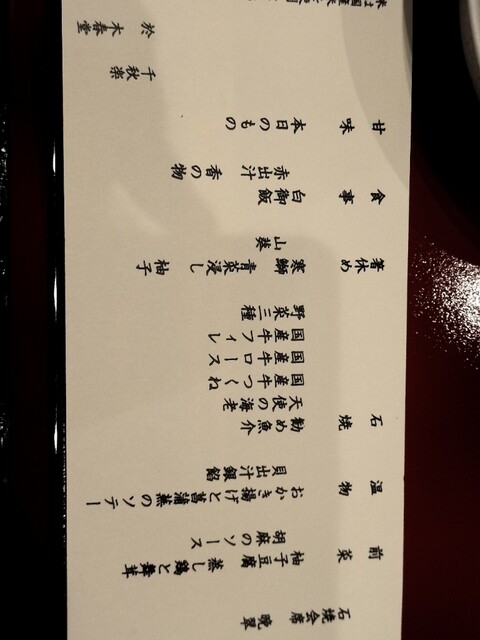 石焼会席 晩翠
前菜
柚子豆腐 蒸し鶏と舞茸
胡麻のソース
温物
おかき揚げと菖蒲蕪のソテー
貝出汁銀餡
石焼
勧め魚介
天使の海老
国産牛つくね
国産牛ロース
国産牛フィレ
野菜三種
箸休め
寒鰤 青菜浸し 柚子
山葵
食事
白御飯
赤出汁 香の物
甘味
本日のもの
千秋楽
於 木春堂
米は国産